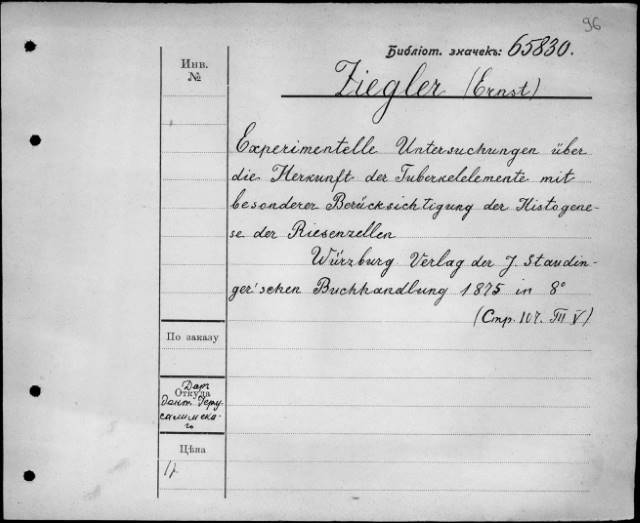 96
Библіот. значекъ: 65830.
Инв.
№
Ziegler (Ernst)
Experimentelle Untersuchungen über
die Herkunft der Tuberkelelemente mit
besonderer Berücksichtigung der Histogene-
se der Riesenzellen
Würzburg Verlag der J. Staudin-
ger'schen Buchhandlung 1875 in 8°
(Стр. 107. III V)
По заказу
Откуда
Даръ
докт. Іеру-
салимска-
го
Цѣна